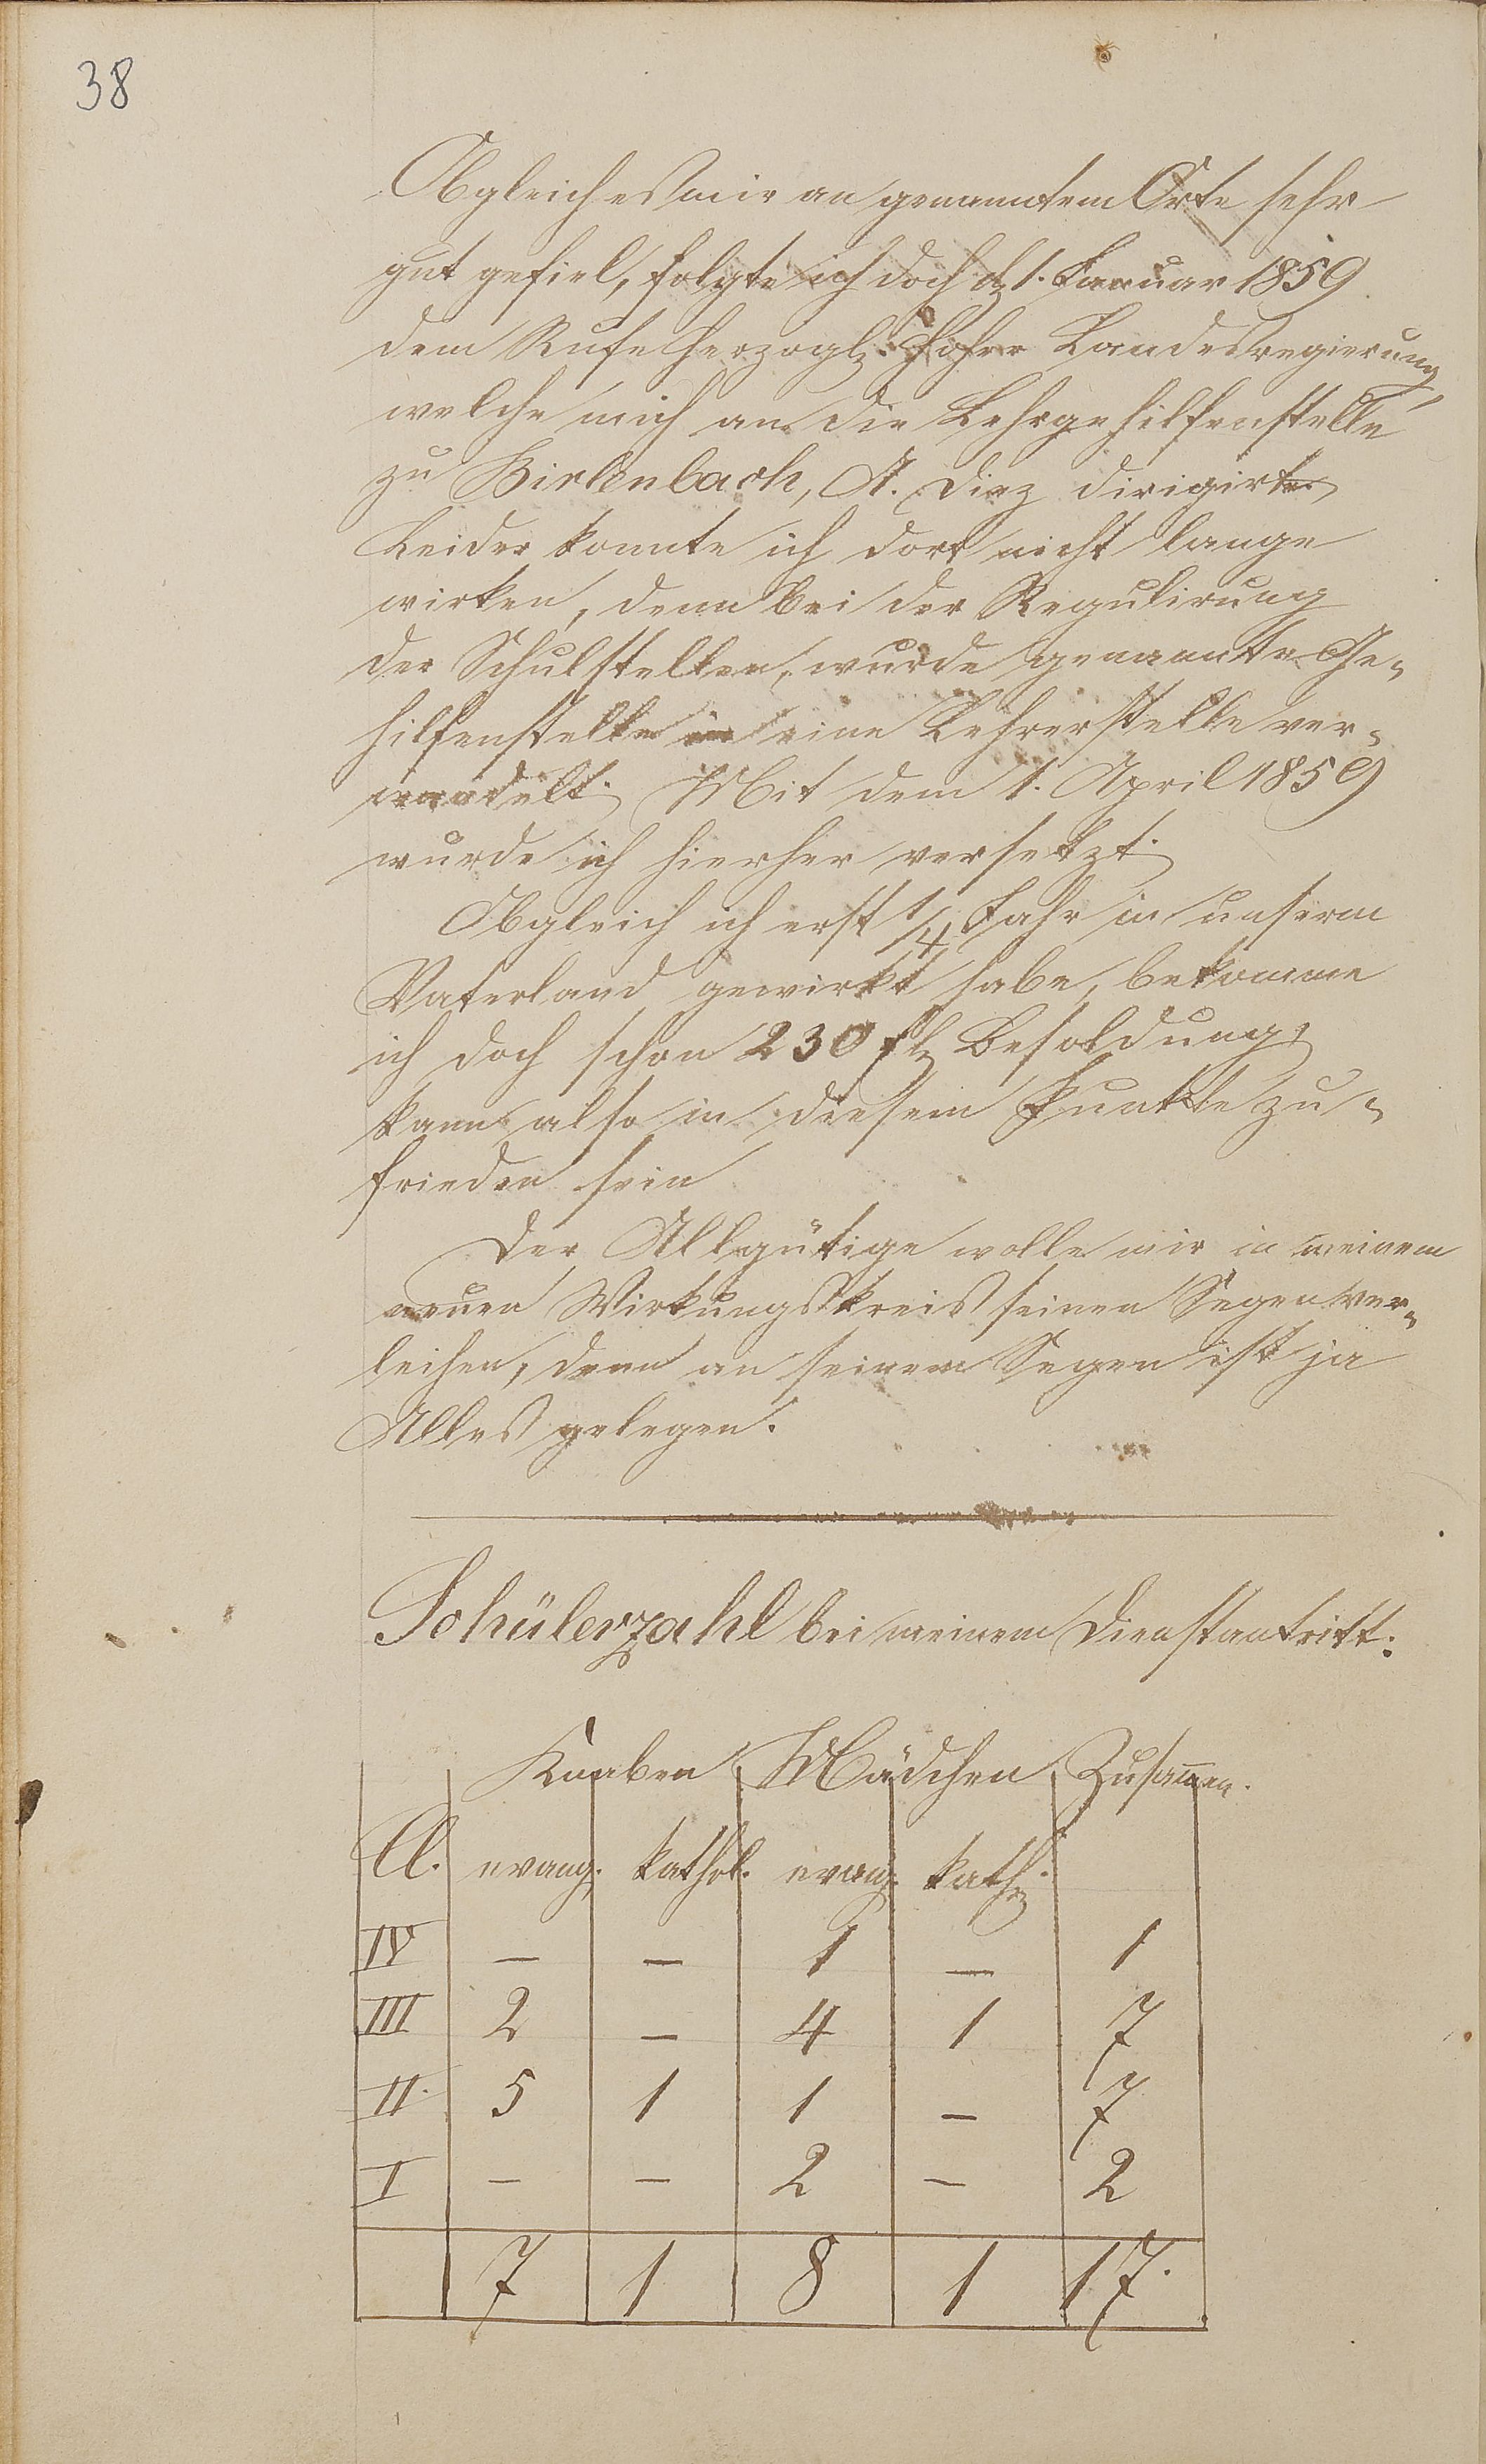 38
Obgleich es mir an genanntem Orte sehr
gut gefiel, folgte ich doch d. 1. Januar 1859
dem Rufe Herzogl. Hoher Landesregierung,
welche mich an die Lehrgehilfenstelle
zu Birlenbach, A. Diez dirigirte.
Leider konnte ich dort nicht lange
wirken, denn bei der Regulirung
der Schulstellen, wurde genannte Ge-
hilfenstelle in eine Lehrerstelle ver-
wandelt. Mit dem 1. April 1859
wurde ich hierher versetzt.
Obgleich ich erst 1/4 Jahr in unserm
Vaterland gewirkt habe, bekomme
ich doch schon 230 fl. Besoldung,
kann also in diesem Punkte zu-
frieden sein
Der Allgütige wolle mir in meinem
neuen Wirkungskreis seinen Segen ver-
leihen, denn an seinem Segen ist ja
Alles gelegen.
Schülerzahl bei meinem Dienstantritt:
Knaben Mädchen Zusammen.
Cl. evang. kathol. evang. kath.
IV — — 1 — 1
III 2 — 4 1 7
II. 5 1 1 — 7
I — — 2 — 2
7 1 8 1 17.